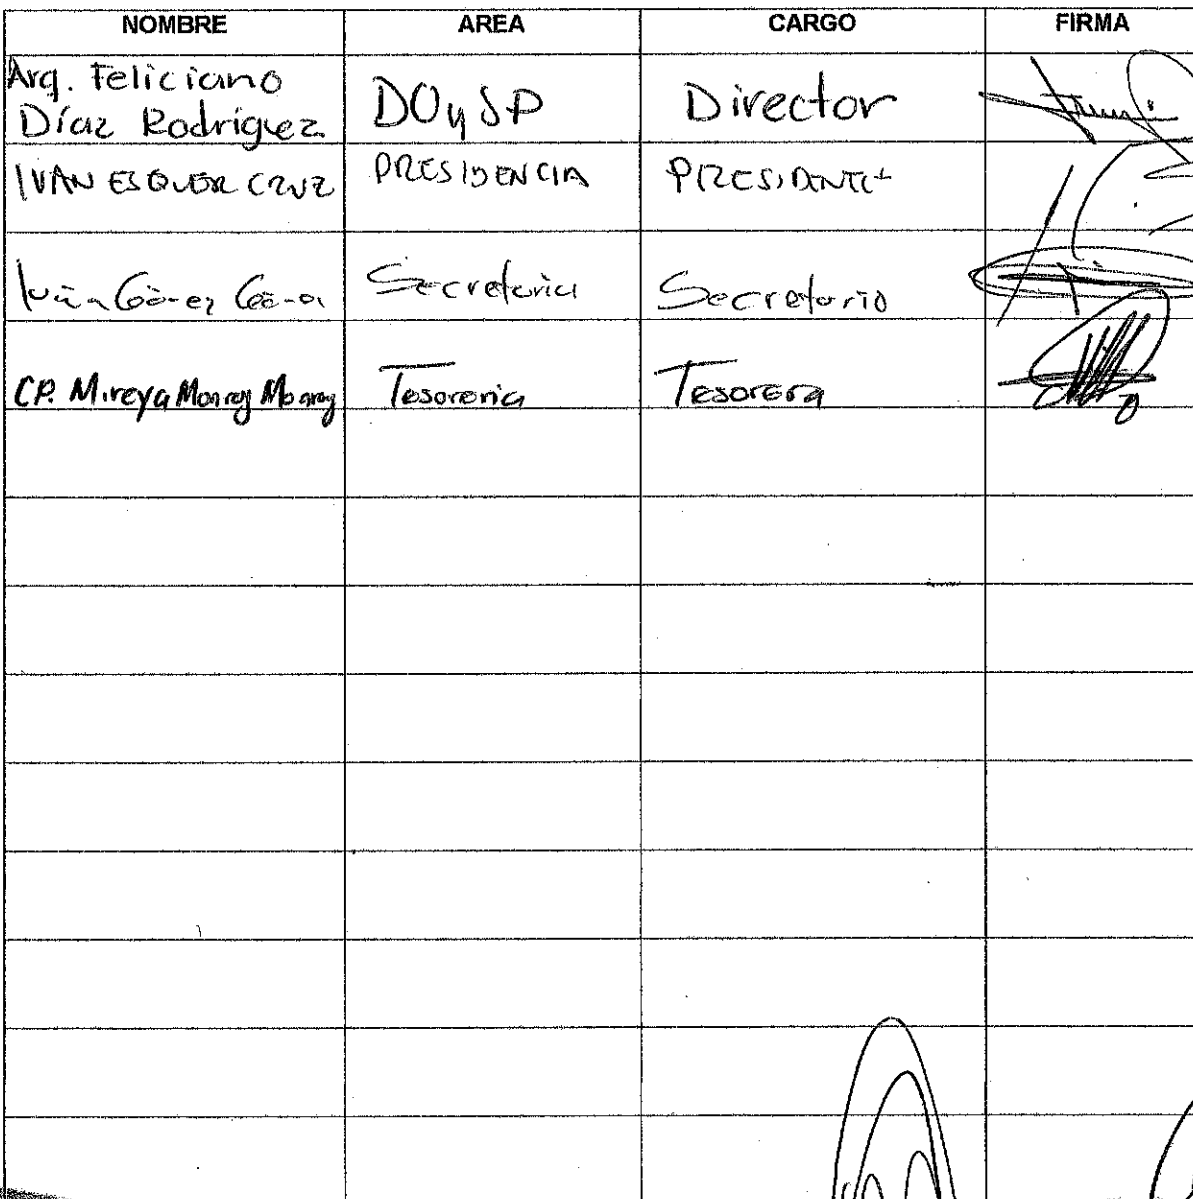 NOMBRE AREA CARGO FIRMA
Arq. Feliciano
Díaz Rodriguez DOySP Director
IVAN ESQUER CRUZ PRESIDENCIA PRESIDENTE
Secretaria Secretario
CP. Mireya Monroy Monroy Tesoreria Tesorera